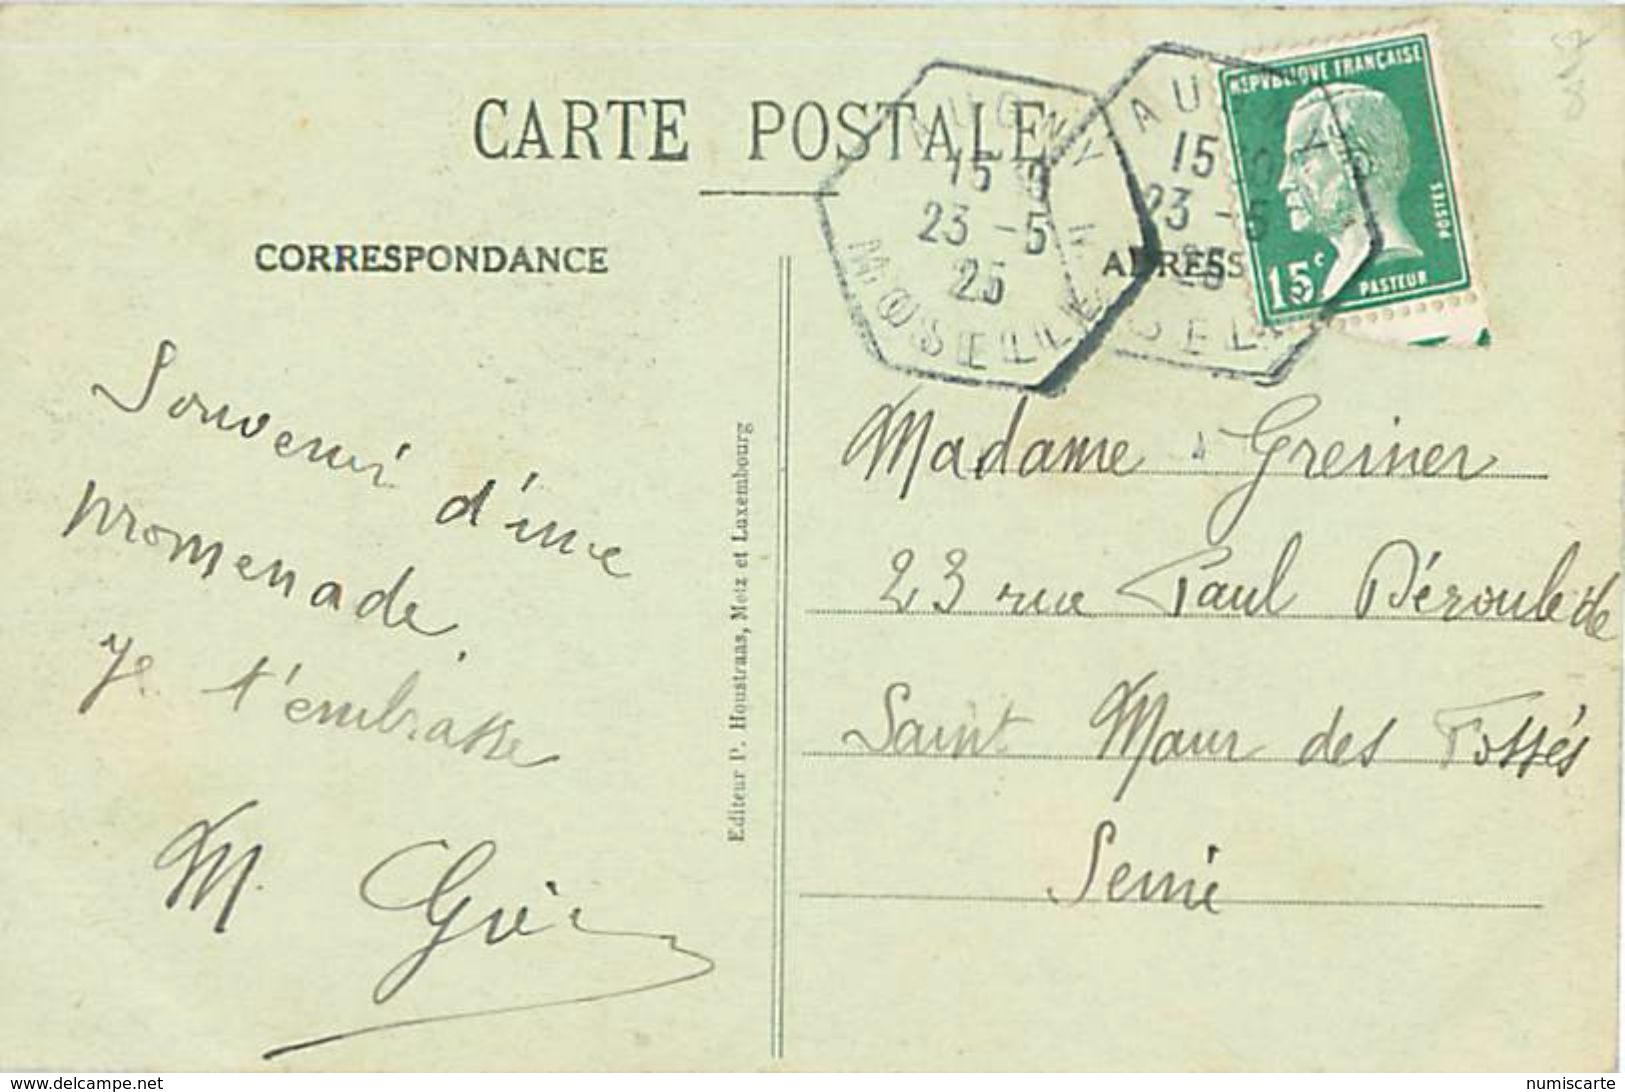 CARTE POSTALE
CORRESPONDANCE
ADRESS
REPVBLIQUE FRANÇAISE
POSTES
15c
PASTEUR
AUGNY
15
23 -5
25
MOSELLE
AU
15
23 -5
25
Souvenir d'une
promenade.
Je t'embrasse
M.
Editeur P. Houstraas, Metz et Luxembourg
Madame Greiner
23 rue Paul Déroulède
Saint Maur des Fossés
Seine
www.delcampe.net
numiscarte